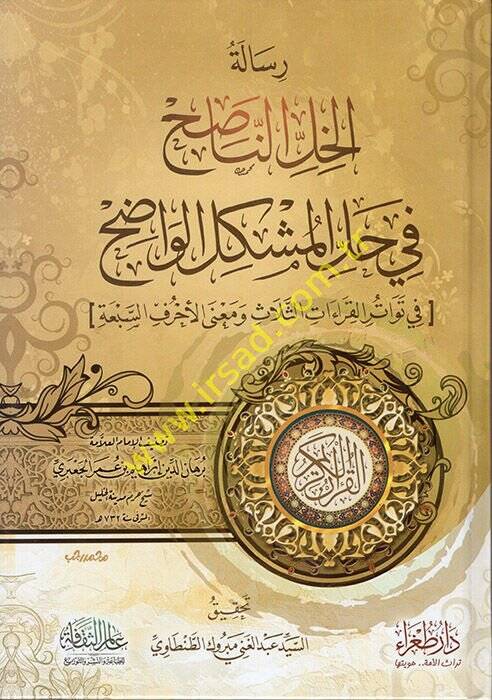 رسالة
الخل الناصح
في حل المشكل الواضح
[ في تواتر القراءات الثلاث ومعنى الأحرف السبعة ]
الإمام العلامة
برهان الدين إبراهيم بن عمر الجعبري
شيخ حرم مدينة الخليل
المتوفى سنة ٧٣٢ هـ
القرآن الكريم
www.irsad.com.tr
تحقيق
السيد عبد الغني مبروك الطنطاوي
دار طغراء
تراث الأمة.. هويتي
عالم الثقافة